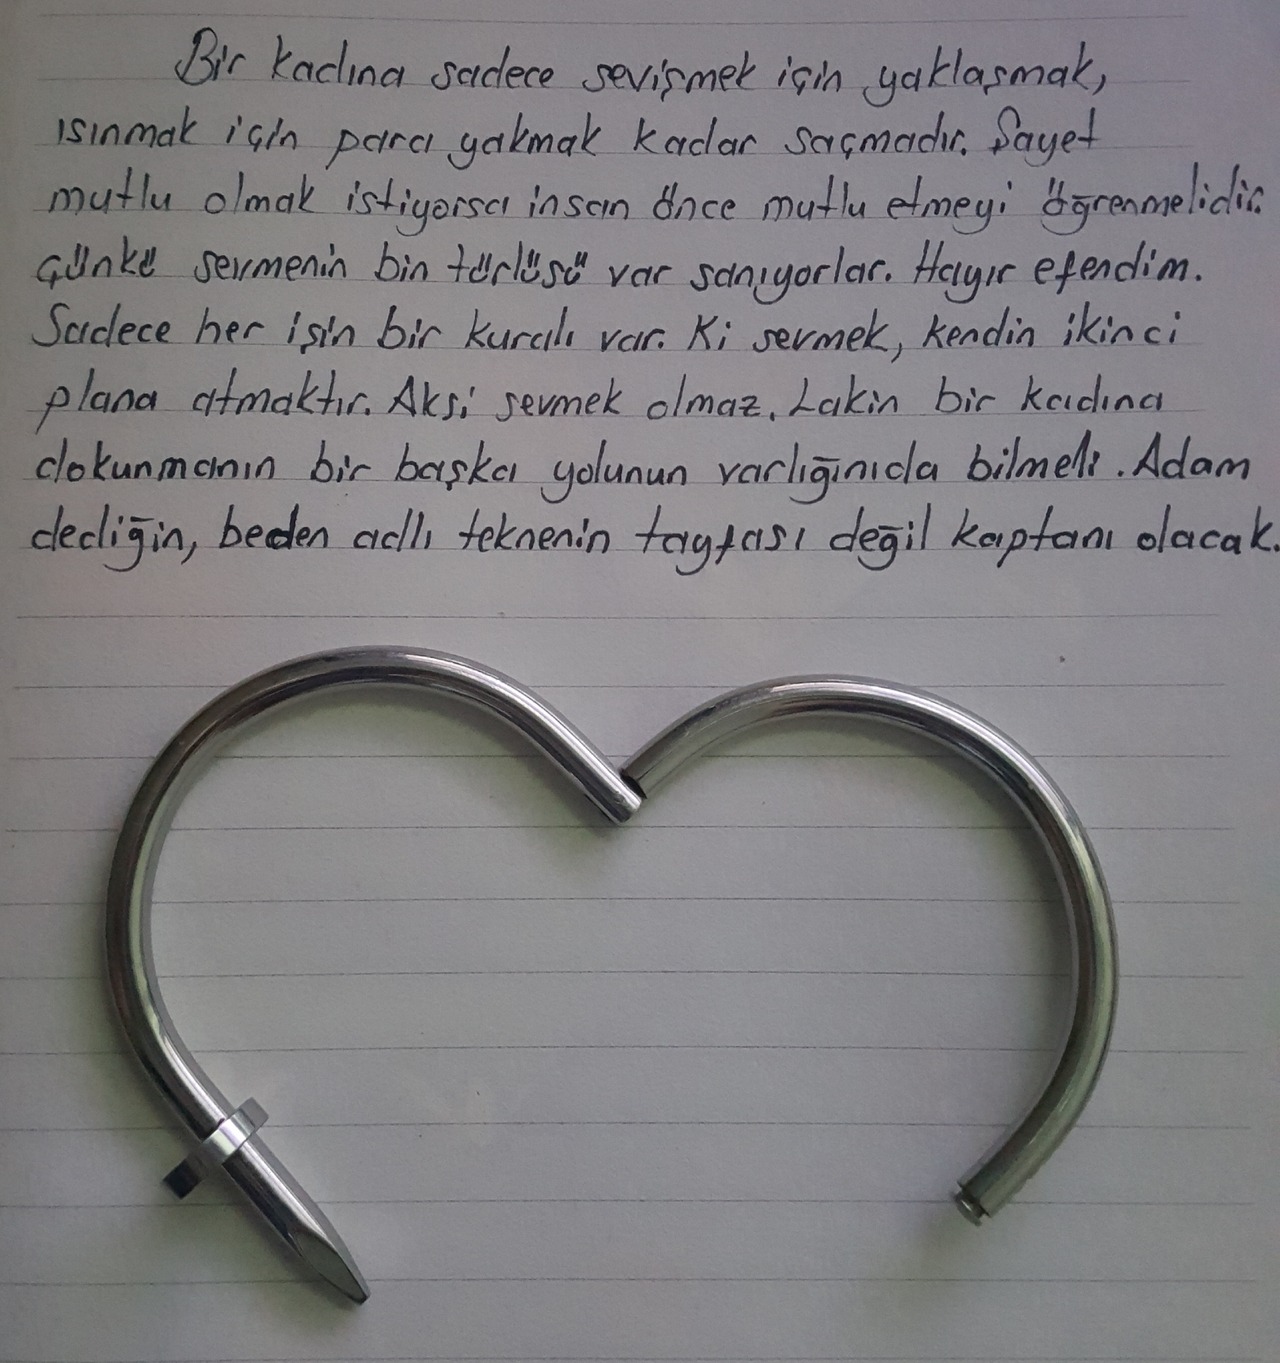 Bir kadına sadece sevişmek için yaklaşmak,
ısınmak için para yakmak kadar saçmadır. Şayet
mutlu olmak istiyorsa insan önce mutlu etmeyi öğrenmelidir.
Çünkü sevmenin bin türlüsü var sanıyorlar. Hayır efendim.
Sadece her işin bir kuralı var. Ki sevmek, kendin ikinci
plana atmaktır. Aksi sevmek olmaz. Lakin bir kadına
dokunmanın bir başka yolunun varlığınıda bilmeli. Adam
dediğin, beden adlı teknenin tayfası değil kaptanı olacak.